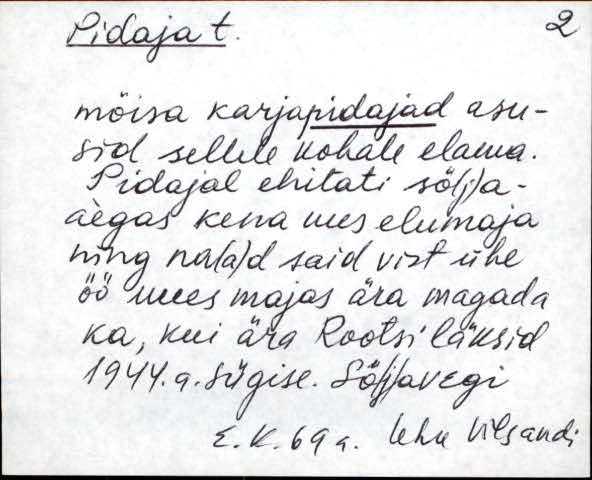 Pidaja t. 2
mõisa karjapidajad asu-
sid sellele kohale elama.
Pidajal ehitati sõ(j)a-
aegas kena uus elumaja
ning na(a)d said vist ühe
öö uues majas ära magada
ka, kui ära Rootsi läksid
1944.a. sügise. Sõ(j)avegi
E.K. 69 a. Uhu Vilsandi